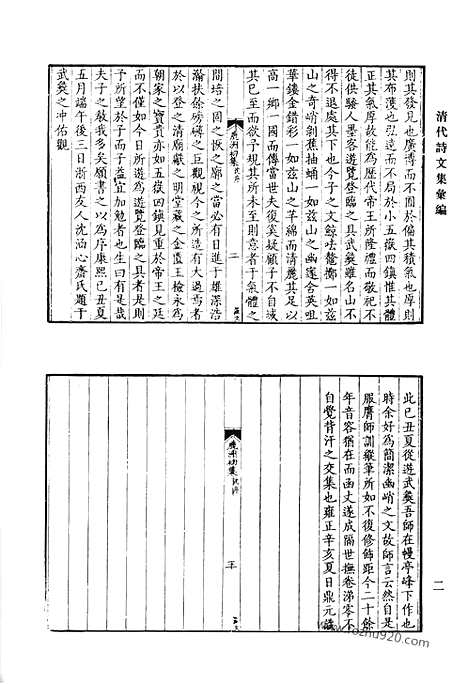 清代詩文集彙編
則其發見也廣博而不囿於偏其積氣也厚則
其布濩也弘遠而不局於小五嶽四鎮惟其體
正其氣厚故能為歷代帝王所隆禮而敬祀不
徒供騷人墨客遊覽登臨之具武夷雖名山不
得不退處其下也今子之文鯨呿鰲擲一如茲
山之奇峭剝蕉抽蛹一如茲山之幽邃含英咀
華鏤金錯彩一如茲山之芊綿而清麗其足以
高一鄉一國而傳當世夫復奚疑顧子不自域
其已至而欲予規其所未至則意者于氣體之
間培之固之恢之廓之當必有日進于雄深浩
瀚扶餘磅礴之巨觀視今之所造有大過焉者
於以登之清廟獻之明堂藏之金匱王檢永為
朝家之寶貴亦如五嶽四鎮見重於帝王之廷
而不僅如今日所遊為遊覽登臨之具者是則
予所望於子而子益宜加勉者也生曰有是哉
夫子之教我多矣願書之以為序康熙己丑夏
五月端午後三日浙西友人沈涵心齋氏題于
武夷之沖佑觀
二
此己丑夏從遊武夷吾師在幔亭峰下作也
時余好為簡潔幽峭之文故師言云然自是
服膺師訓縱筆所如不復修飾距今二十餘
年音容猶在而函丈遂成隔世撫卷涕零不
自覺背汗之交集也雍正辛亥夏日鼎元識
二
www.rozhu920.com